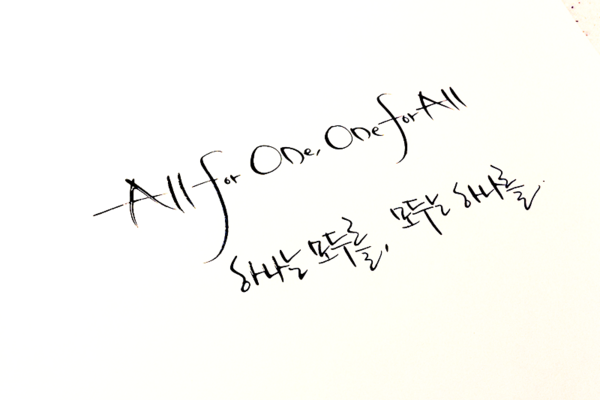 All for One, One for All
하나는 모두를, 모두는 하나를